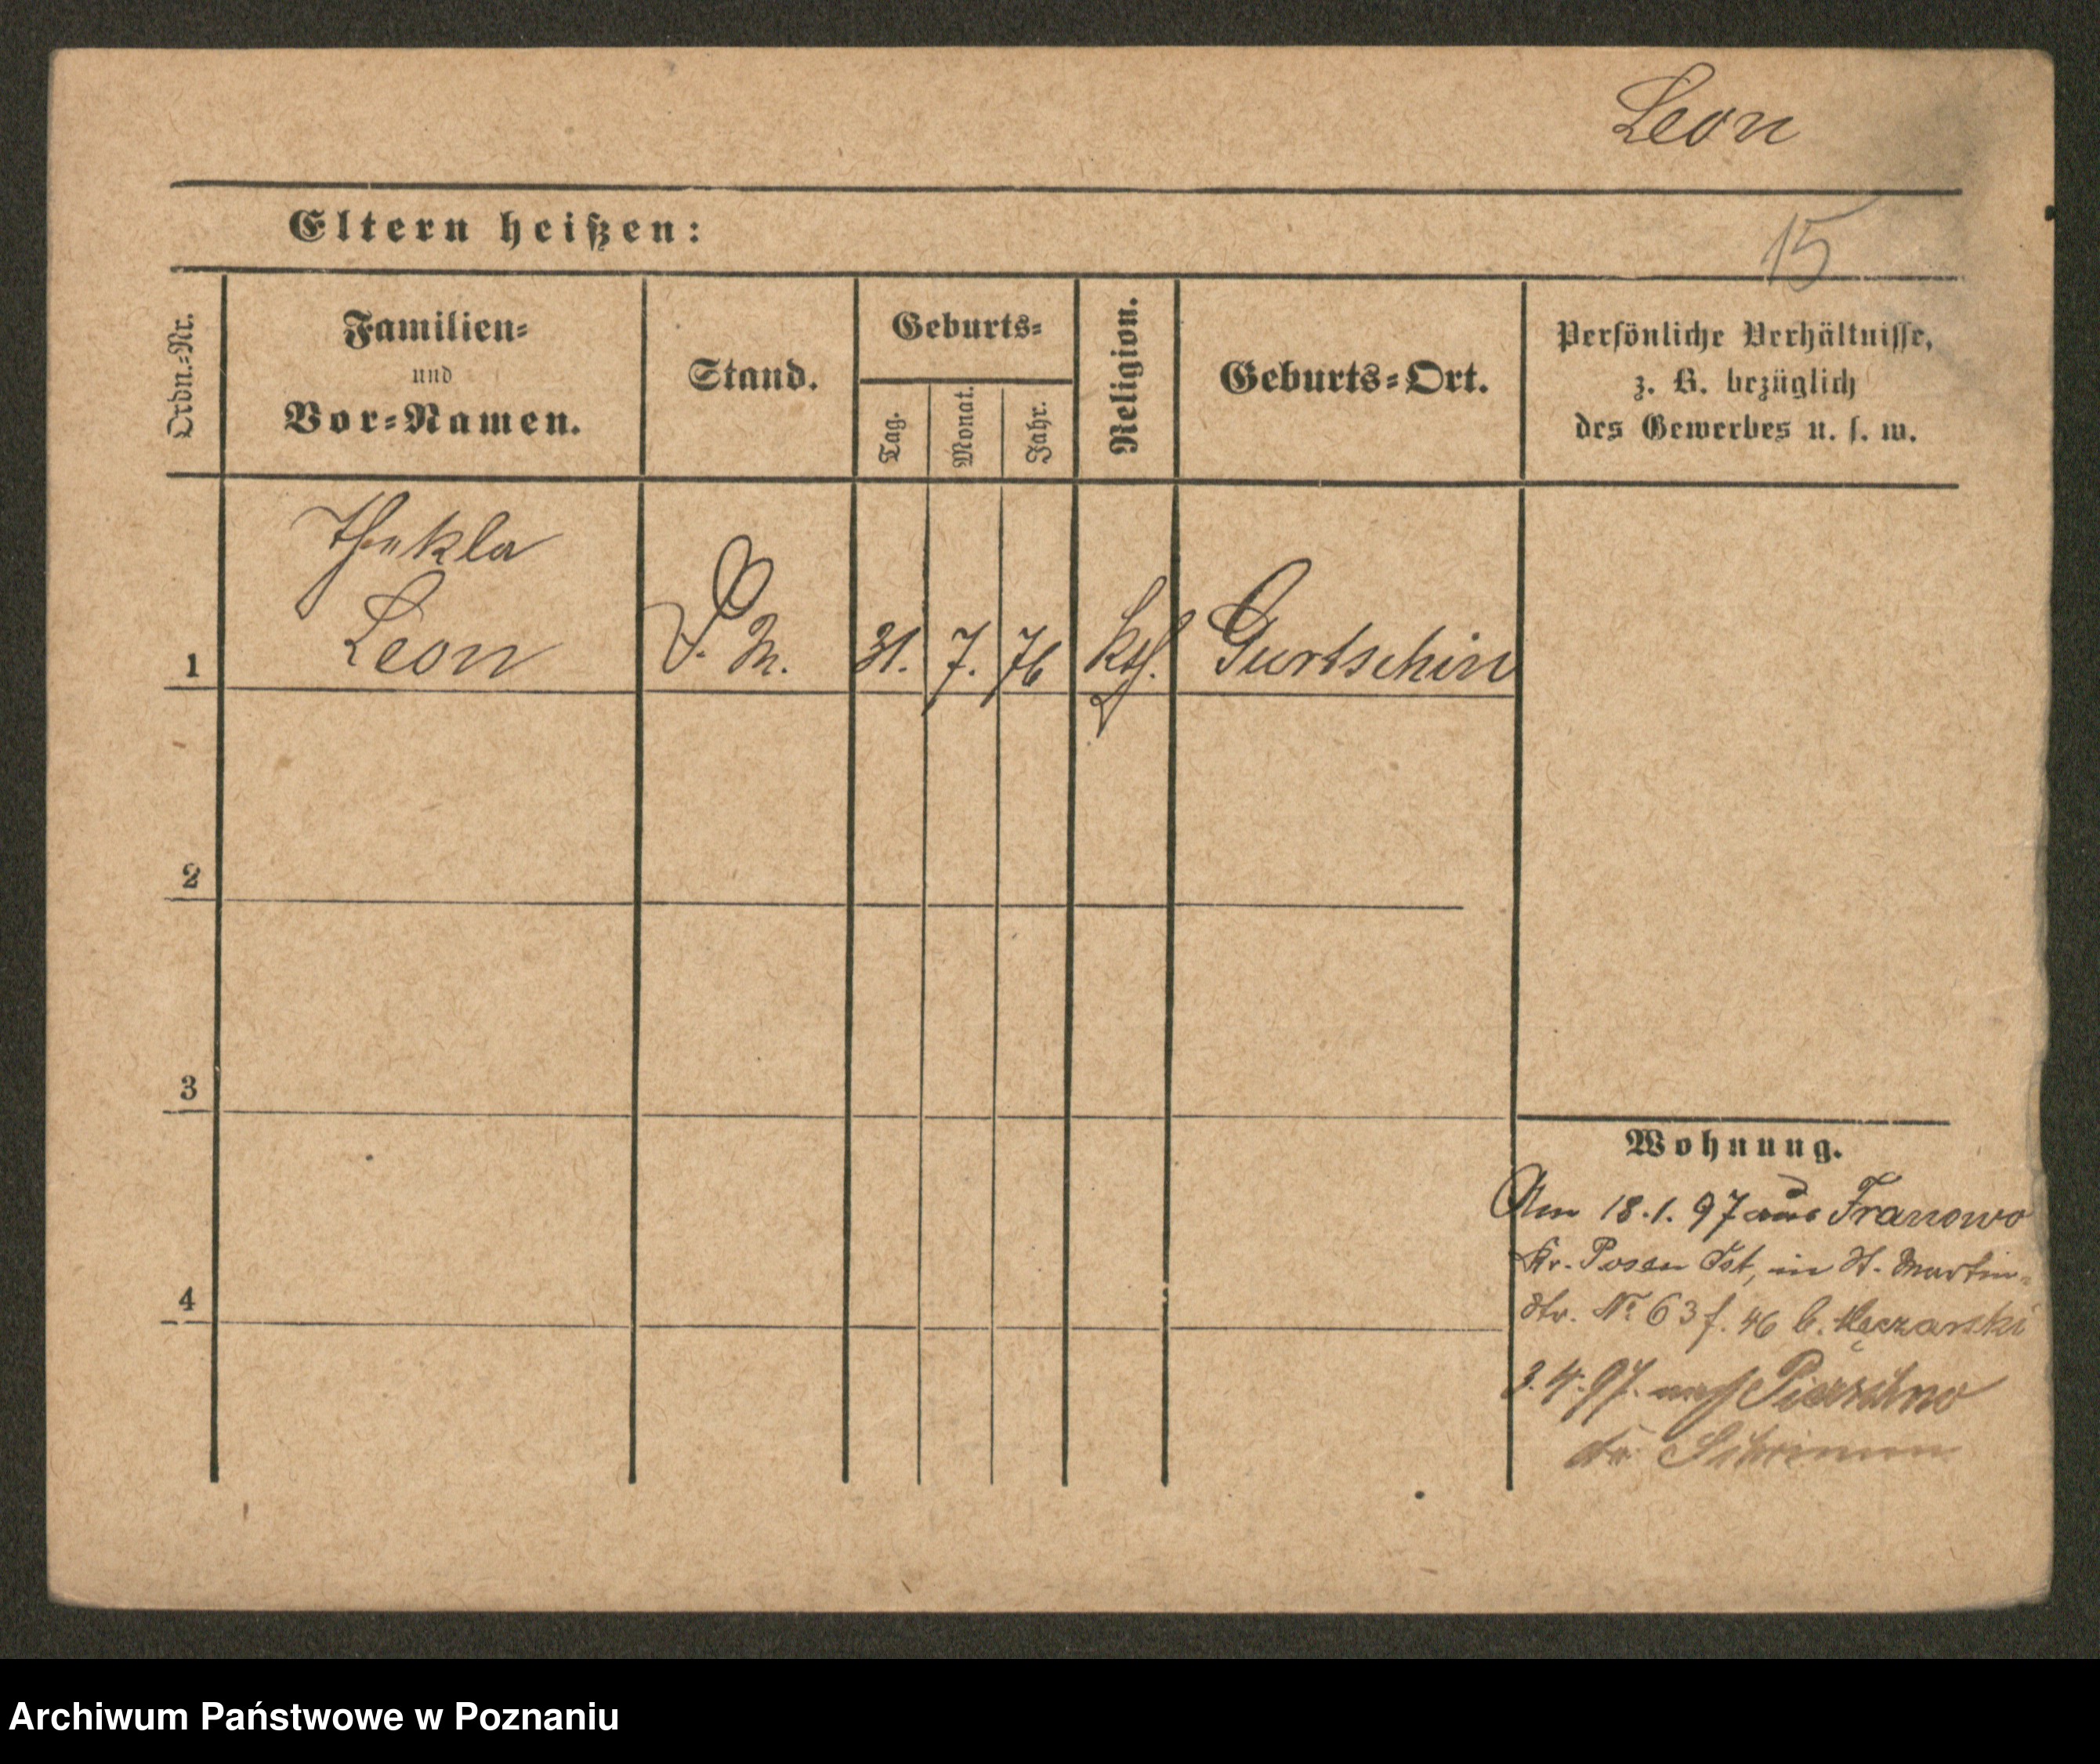 Leon
Eltern heißen:
15
Ordn.-Nr.
Familien-
und
Vor-Namen.
Stand.
Geburts-
Tag.
Monat.
Jahr.
Religion.
Geburts-Ort.
Persönliche Verhältnisse,
z. B. bezüglich
des Gewerbes u. s. w.
Thekla
Leon
1
D. M.
31.
7.
76
kth.
Gurtschin
2
3
4
Wohnung.
Am 18.1.97 aus Franowo
Kr. Posen Ost, in St. Martin-
str. No 63 f. 46 b.
3.4.97. nach
Kr. Schrimm
Archiwum Państwowe w Poznaniu